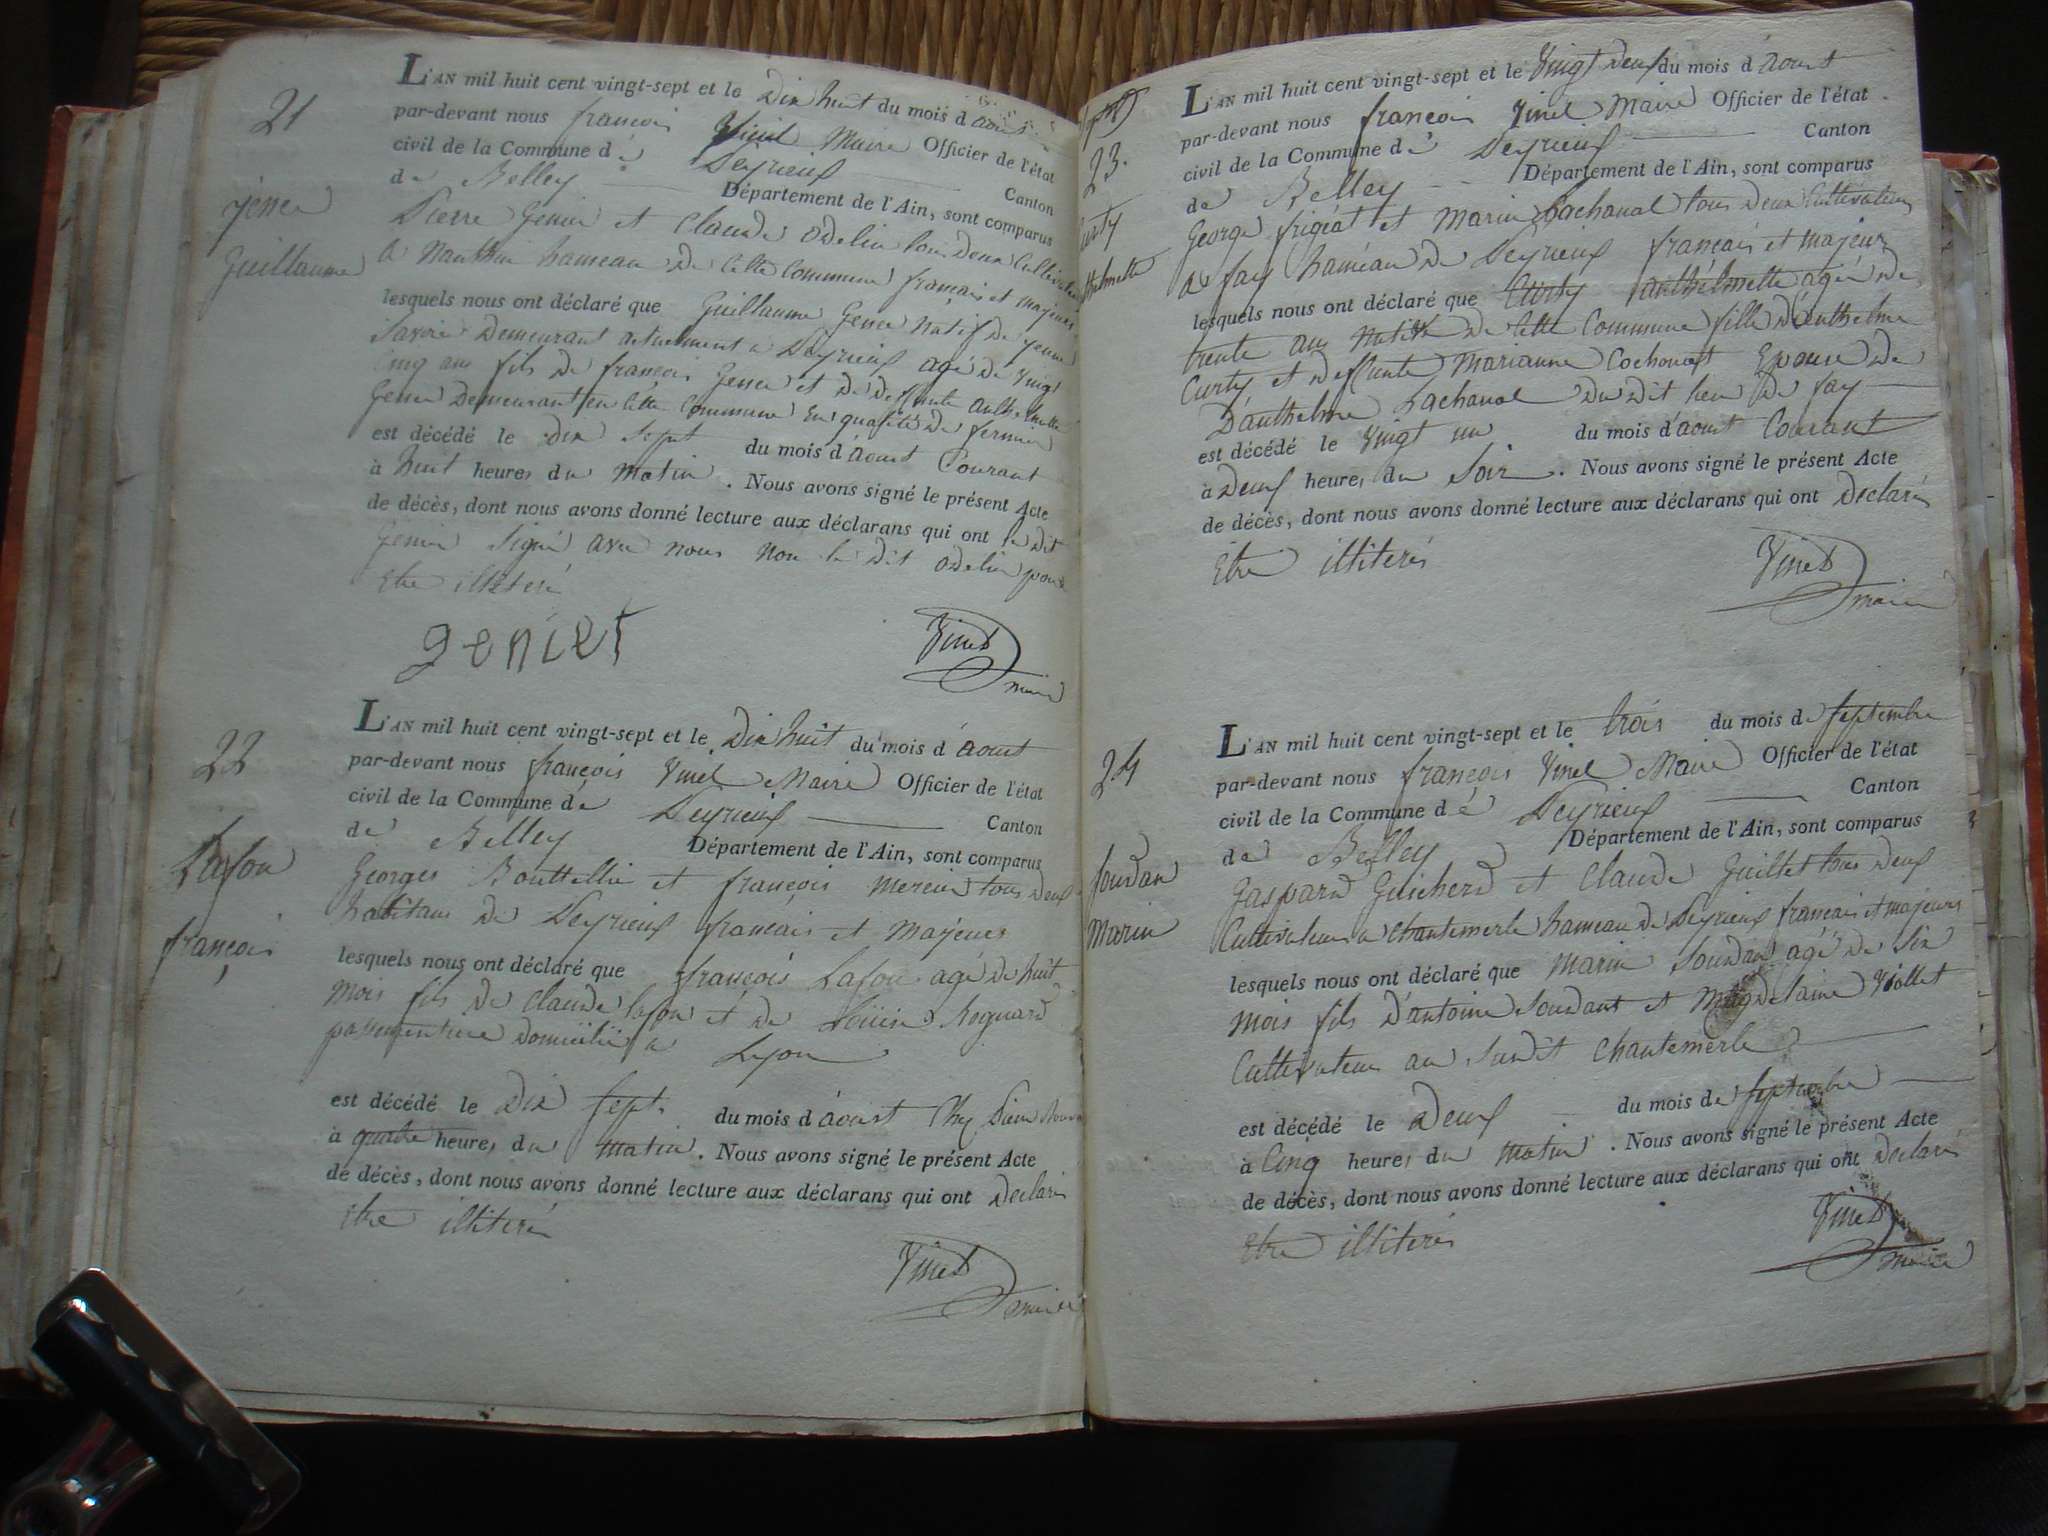 21
L'AN mil huit cent vingt-sept et le Dix huit du mois d'aoust
par-devant nous françois Vinel Maire Officier de l'état
civil de la Commune de Peyrieux Canton
de Belley Département de l'Ain, sont comparus
Pierre Genier et Claude odelin tous Deux Cultivateurs
a Nanthui hameau de Cette Commune français et majeurs
Gence
Guillaume
lesquels nous ont déclaré que Guillaume Gence Natif de yenne
Savoie Demeurant actuelment a Peyrieux agé de vingt
Cinq ans fils de françois Gence et de deffunte anthelmette
Gence Demeurant en Cette Commune en qualité de fermier
est décédé le dix sept du mois d'aoust Courant
à huit heures du matin. Nous avons signé le présent Acte
de décès, dont nous avons donné lecture aux déclarans qui ont le dit
Genier Signé avec nous non le Dit odelin pour
Etre illiteré
genier
Vinel
maire
22
L'AN mil huit cent vingt-sept et le Dix huit du mois d'aoust
par-devant nous françois Vinel Maire Officier de l'état
civil de la Commune de Peyrieux Canton
de Belley Département de l'Ain, sont comparus
Georges et françois Mercier tous Deux
habitans de Peyrieux français et Majeurs
Lafon
françois
lesquels nous ont déclaré que françois Lafon agé de huit
mois fils de Claude Lafon et de Louise
domicilié a Lyon
est décédé le Dix sept. du mois d'aoust Chez
à quatre heures du matin. Nous avons signé le présent Acte
de décès, dont nous avons donné lecture aux déclarans qui ont declarés
Etre illiterés
Vinel
maire
23.
L'AN mil huit cent vingt-sept et le Vingt deux du mois d'aoust
par-devant nous françois Vinel Maire Officier de l'état
civil de la Commune de Peyrieux Canton
de Belley Département de l'Ain, sont comparus
George frigeat et Marin Lachanal tous Deux Cultivateurs
a fay hameau de Peyrieux français et majeurs
lesquels nous ont déclaré que Curty anthelmette agée de
trente ans Native de Cette Commune fille d'anthelme
Curty et deffunte Marianne Cochonat Epouse de
D'anthelme Lachanal du dit lieu de fay
est décédé le vingt un du mois d'aoust Courant
à Deux heures du Soir. Nous avons signé le présent Acte
de décès, dont nous avons donné lecture aux déclarans qui ont declarés
Etre illiterés
Vinel
maire
24
L'AN mil huit cent vingt-sept et le trois du mois de septembre
par-devant nous françois Vinel Maire Officier de l'état
civil de la Commune de Peyrieux Canton
de Belley Département de l'Ain, sont comparus
Gaspard Guicherd et Claude Guillet tous deux
Cultivateurs a Chantemerle hameau de Peyrieux français et majeurs
Jourdan
Marin
lesquels nous ont déclaré que Marin Jourdan agé de Six
Mois fils D'antoine Jourdant et Magdelaine Viollet
Cultivateur au Susdit Chantemerle
est décédé le Deux du mois de septembre
à Cinq heures du matin. Nous avons signé le présent Acte
de décès, dont nous avons donné lecture aux déclarans qui ont declarés
Etre illiterés
Vinel
maire